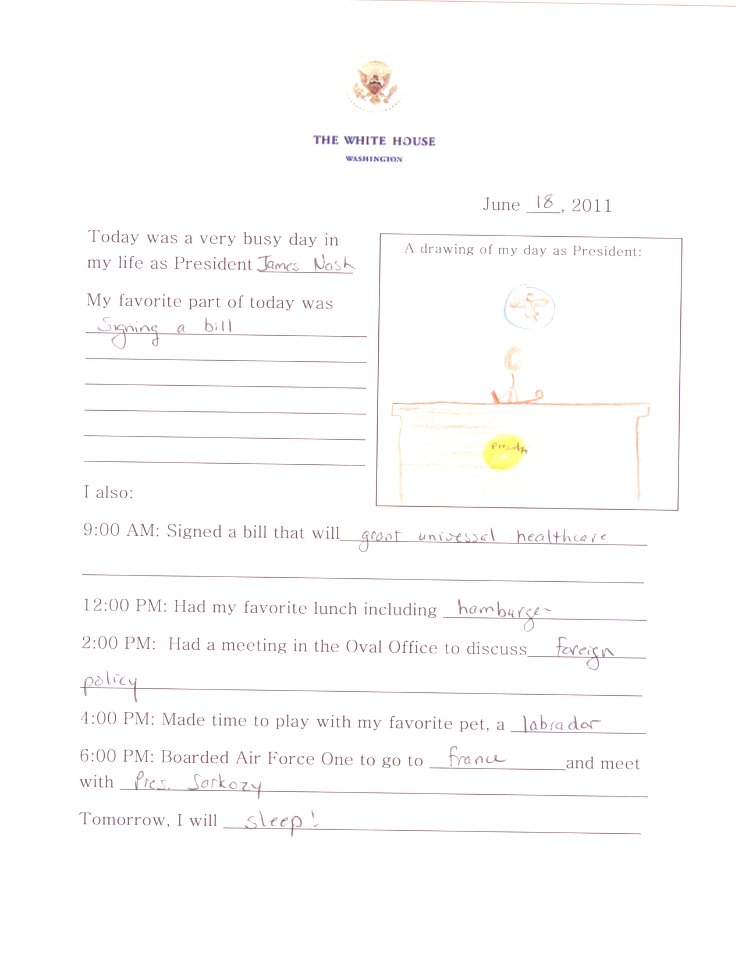 THE WHITE HOUSE
WASHINGTON
June 18, 2011
Today was a very busy day in
my life as President James Nash
My favorite part of today was
Signing a bill
A drawing of my day as President:
I also:
9:00 AM: Signed a bill that will grant universal healthcare
12:00 PM: Had my favorite lunch including hamburger
2:00 PM: Had a meeting in the Oval Office to discuss foreign
policy
4:00 PM: Made time to play with my favorite pet, a labrador
6:00 PM: Boarded Air Force One to go to france and meet
with Pres. Sarkozy
Tomorrow, I will sleep!